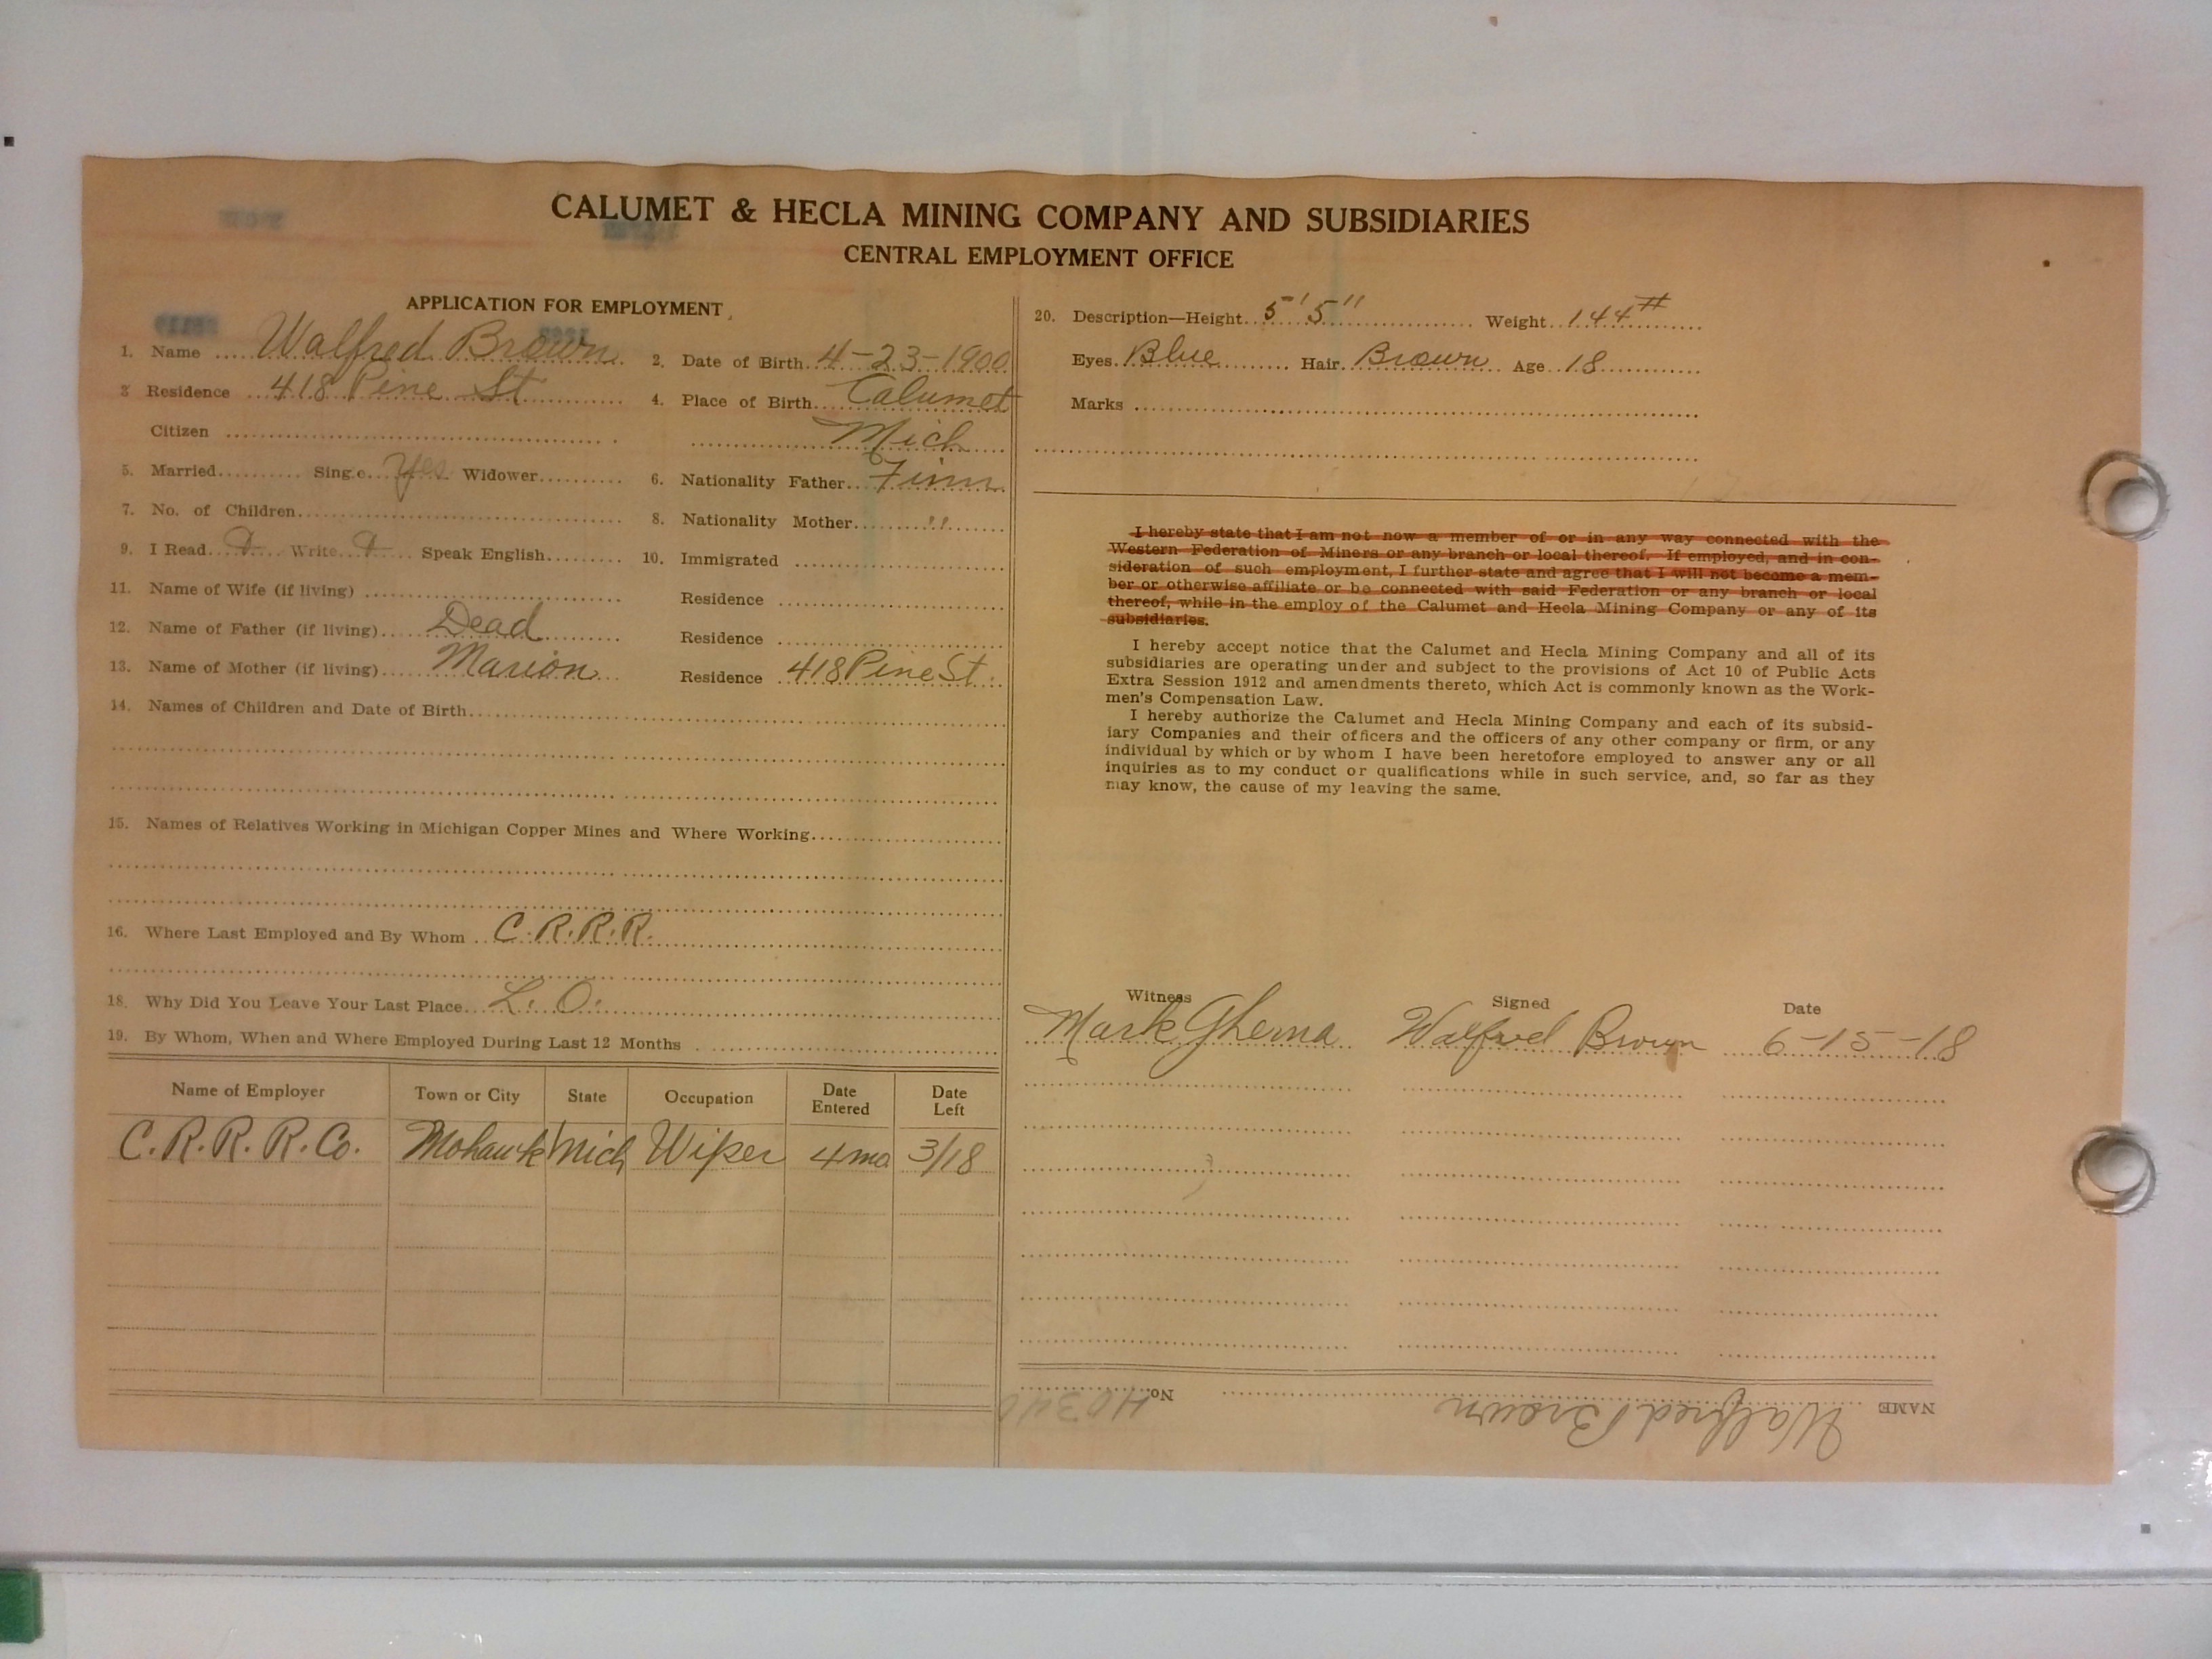 CALUMET & HECLA MINING COMPANY AND SUBSIDIARIES
CENTRAL EMPLOYMENT OFFICE
APPLICATION FOR EMPLOYMENT
1. Name Walfred Brown 2. Date of Birth 4-23-1900
3 Residence 418 Pine St 4. Place of Birth Calumet
Citizen Mich
5. Married Single Yes Widower 6. Nationality Father Finn
7. No. of Children 8. Nationality Mother "
9. I Read Write Speak English 10. Immigrated
11. Name of Wife (if living) Residence
12. Name of Father (if living) Dead Residence
13. Name of Mother (if living) Marion Residence 418 Pine St.
14. Names of Children and Date of Birth
15. Names of Relatives Working in Michigan Copper Mines and Where Working
16. Where Last Employed and By Whom C.R.R.R.
18. Why Did You Leave Your Last Place L. O.
19. By Whom, When and Where Employed During Last 12 Months
Name of Employer Town or City State Occupation Date Entered Date Left
C.R.R.R.Co. Mohawk Mich Wiper 4 mo 3/18
20. Description—Height 5' 5" Weight 144#
Eyes Blue Hair Brown Age 18
Marks
I hereby state that I am not now a member of or in any way connected with the
Western Federation of Miners or any branch or local thereof. If employed, and in con-
sideration of such employment, I further state and agree that I will not become a mem-
ber or otherwise affiliate or be connected with said Federation or any branch or local
thereof, while in the employ of the Calumet and Hecla Mining Company or any of its
subsidiaries.
I hereby accept notice that the Calumet and Hecla Mining Company and all of its
subsidiaries are operating under and subject to the provisions of Act 10 of Public Acts
Extra Session 1912 and amendments thereto, which Act is commonly known as the Work-
men's Compensation Law.
I hereby authorize the Calumet and Hecla Mining Company and each of its subsid-
iary Companies and their officers and the officers of any other company or firm, or any
individual by which or by whom I have been heretofore employed to answer any or all
inquiries as to my conduct or qualifications while in such service, and, so far as they
may know, the cause of my leaving the same.
Witness Signed Date
Mark Gherna Walfred Brown 6-15-18
NAME Walfred Brown No.